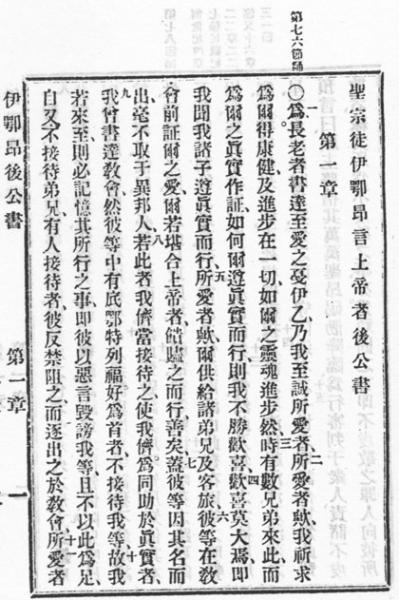 第七六節師
聖宗徒伊鄂昂言上帝者後公書
第一章
爲長老者書達至愛之戞伊乙乃我至誠所愛者所愛者歟我祈求
爲爾得康健及進步在一切如爾之靈魂進步然時有數兄弟來此而
爲爾之眞實作証如何爾遵眞實而行則我不勝歡喜歡喜莫大焉即
我聞我諸子遵眞實而行所愛者歟爾供給諸弟兄及客旅彼等在敎
會前証爾之愛爾若堪合上帝者餽贐之而行善矣蓋彼等因其名而
出毫不取于異邦人若此者我儕當接待之使我儕爲同助於眞實者
我曾書達敎會然彼等中有底鄂特列福好爲首者不接待我等故我
若來至則必記憶其所行之事即彼以惡言毀謗我等且不以此爲足
自又不接待弟兄有人接待者彼反禁阻之而逐出之於敎會所愛者
伊鄂昂後公書
第一章
一